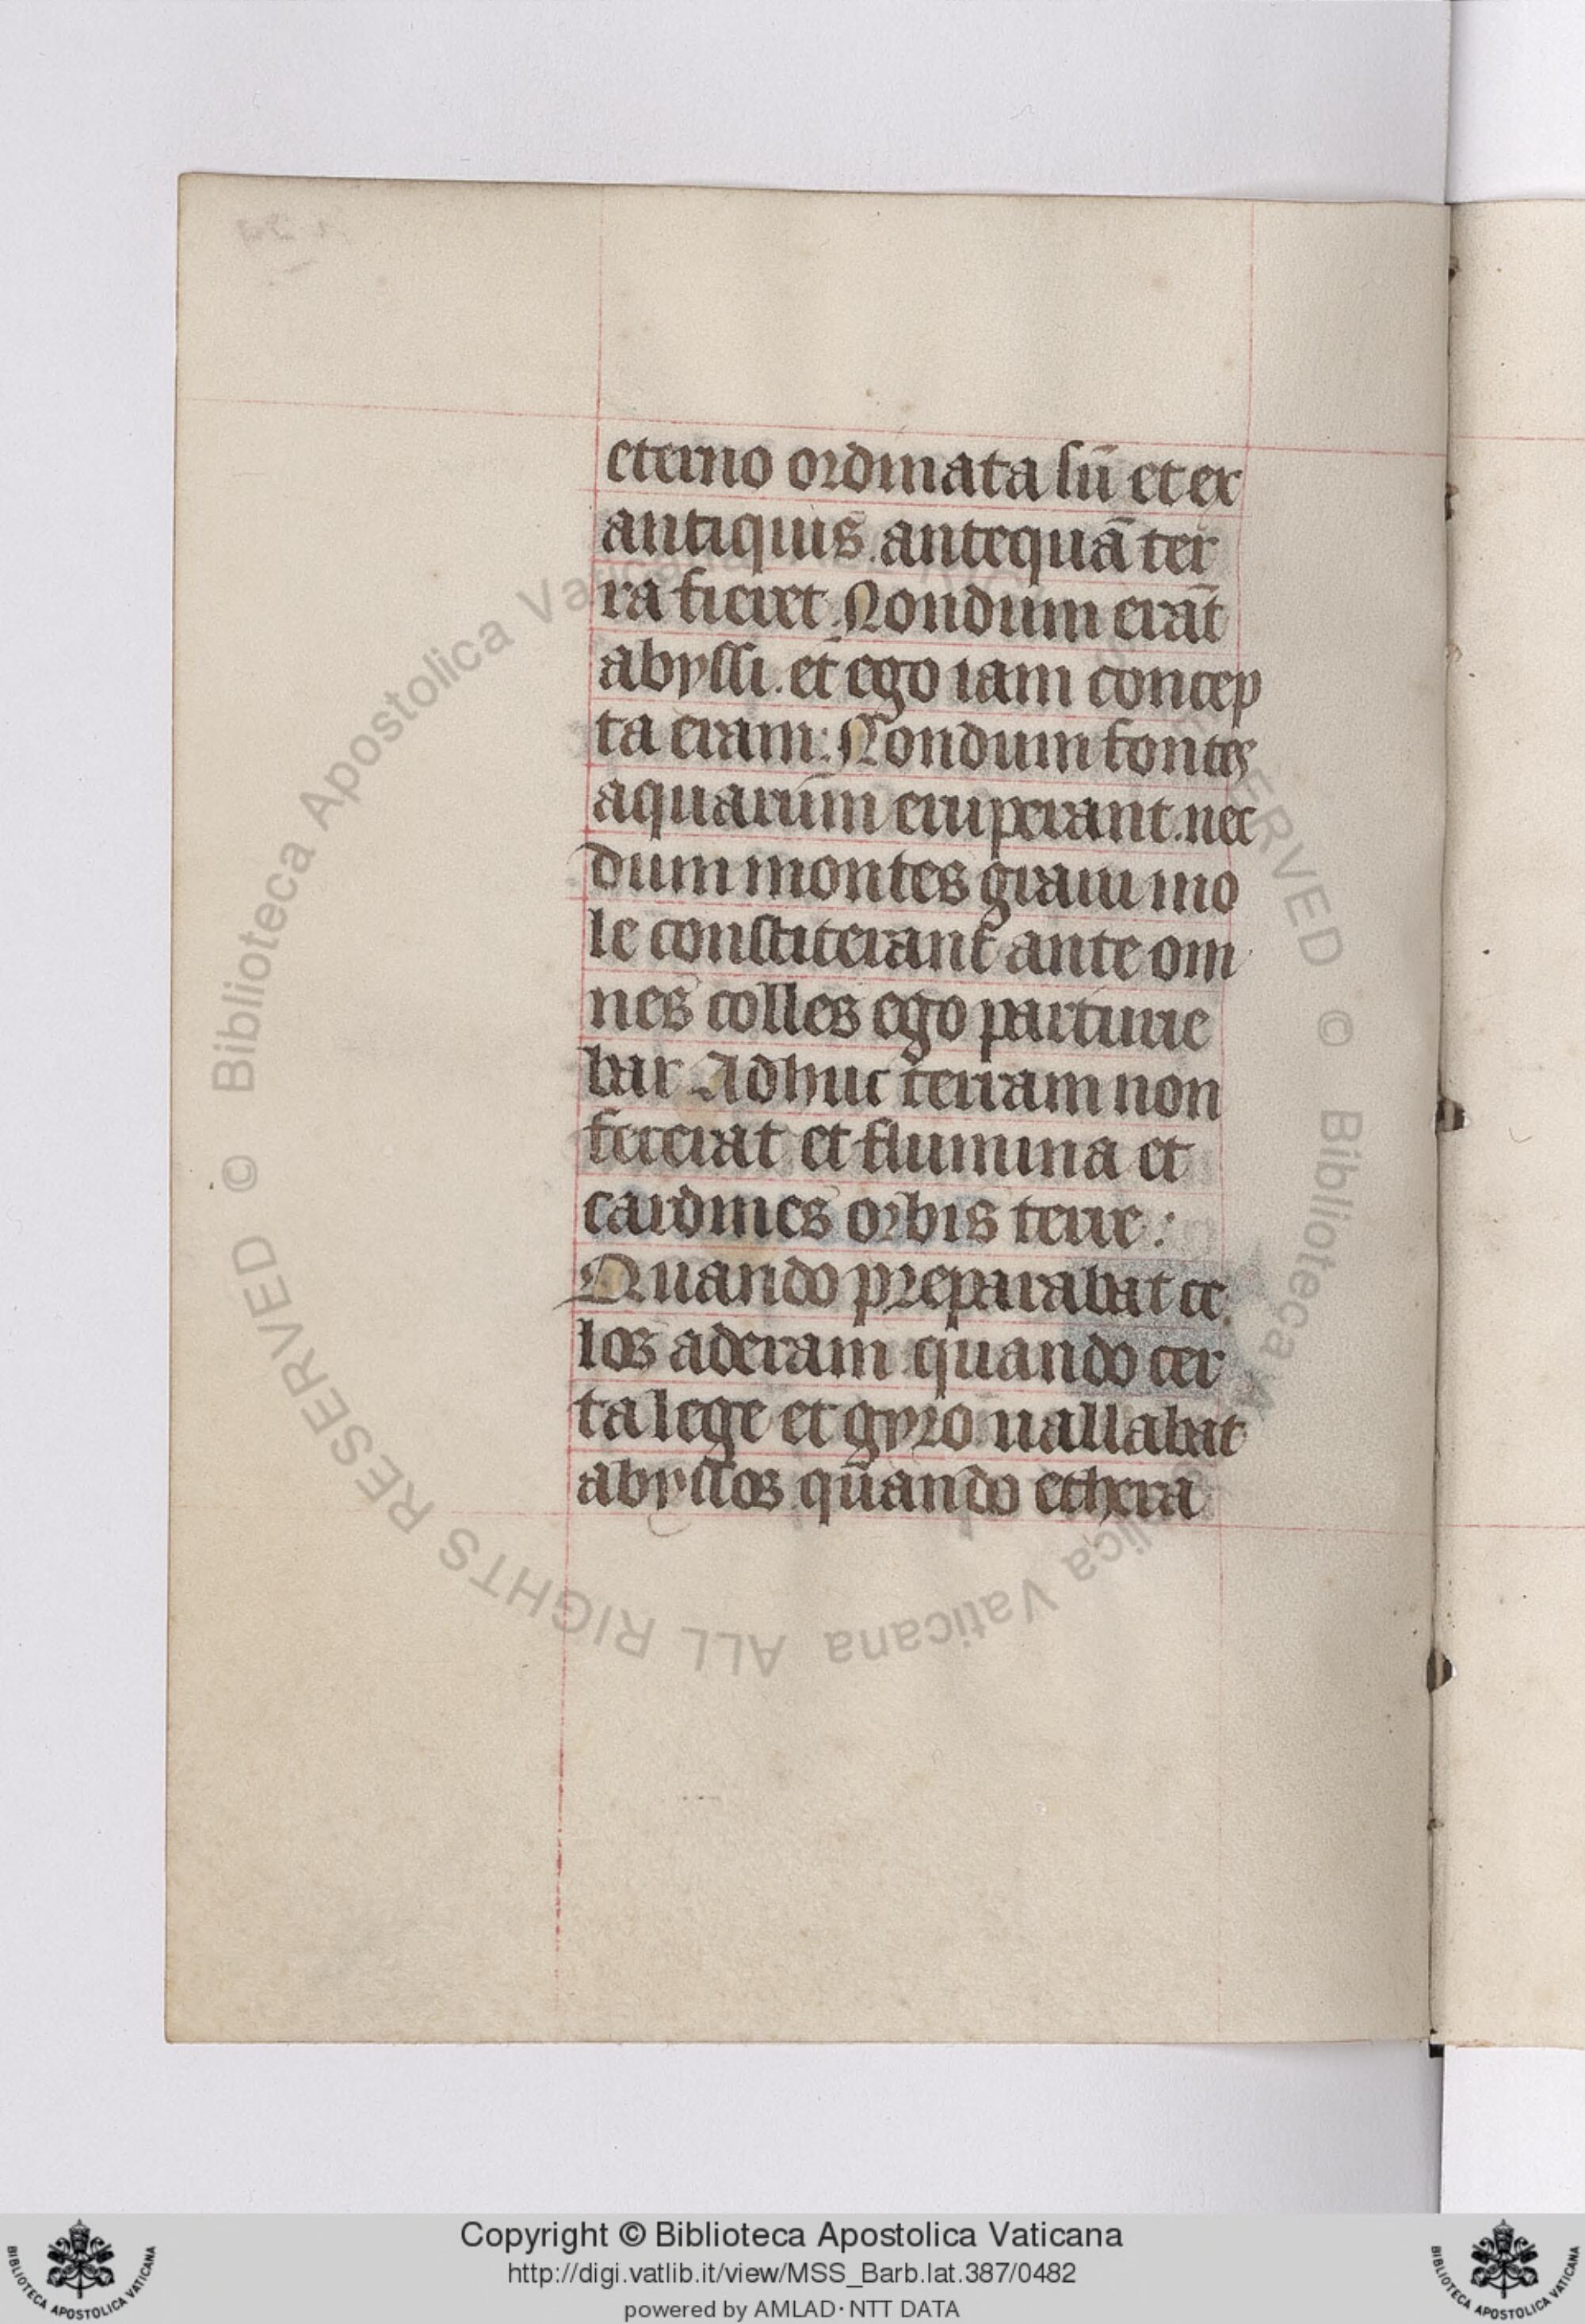 eterno ordinata sū et ex
antiquis. antequā ter
ra fieret. Nondum erāt
abyssi. et ego iam concep
ta eram: Nondum fontes
aquarum eruperant. nec
dum montes graui mo
le constiterant ante om
nes colles ego parturie
bar. Adhuc terram non
fecerat et flumina et
cardines orbis terre:
Quando preparabat ce
los aderam quando cer
ta lege et gyro uallabat
abyssos quando ethera
© Biblioteca Apostolica Vaticana ALL RIGHTS RESERVED
© Biblioteca Apostolica Vaticana ALL RIGHTS RESERVED
BIBLIOTECA APOSTOLICA VATICANA
Copyright © Biblioteca Apostolica Vaticana
http://digi.vatlib.it/view/MSS_Barb.lat.387/0482
powered by AMLAD·NTT DATA
BIBLIOTECA APOSTOLICA VATICANA